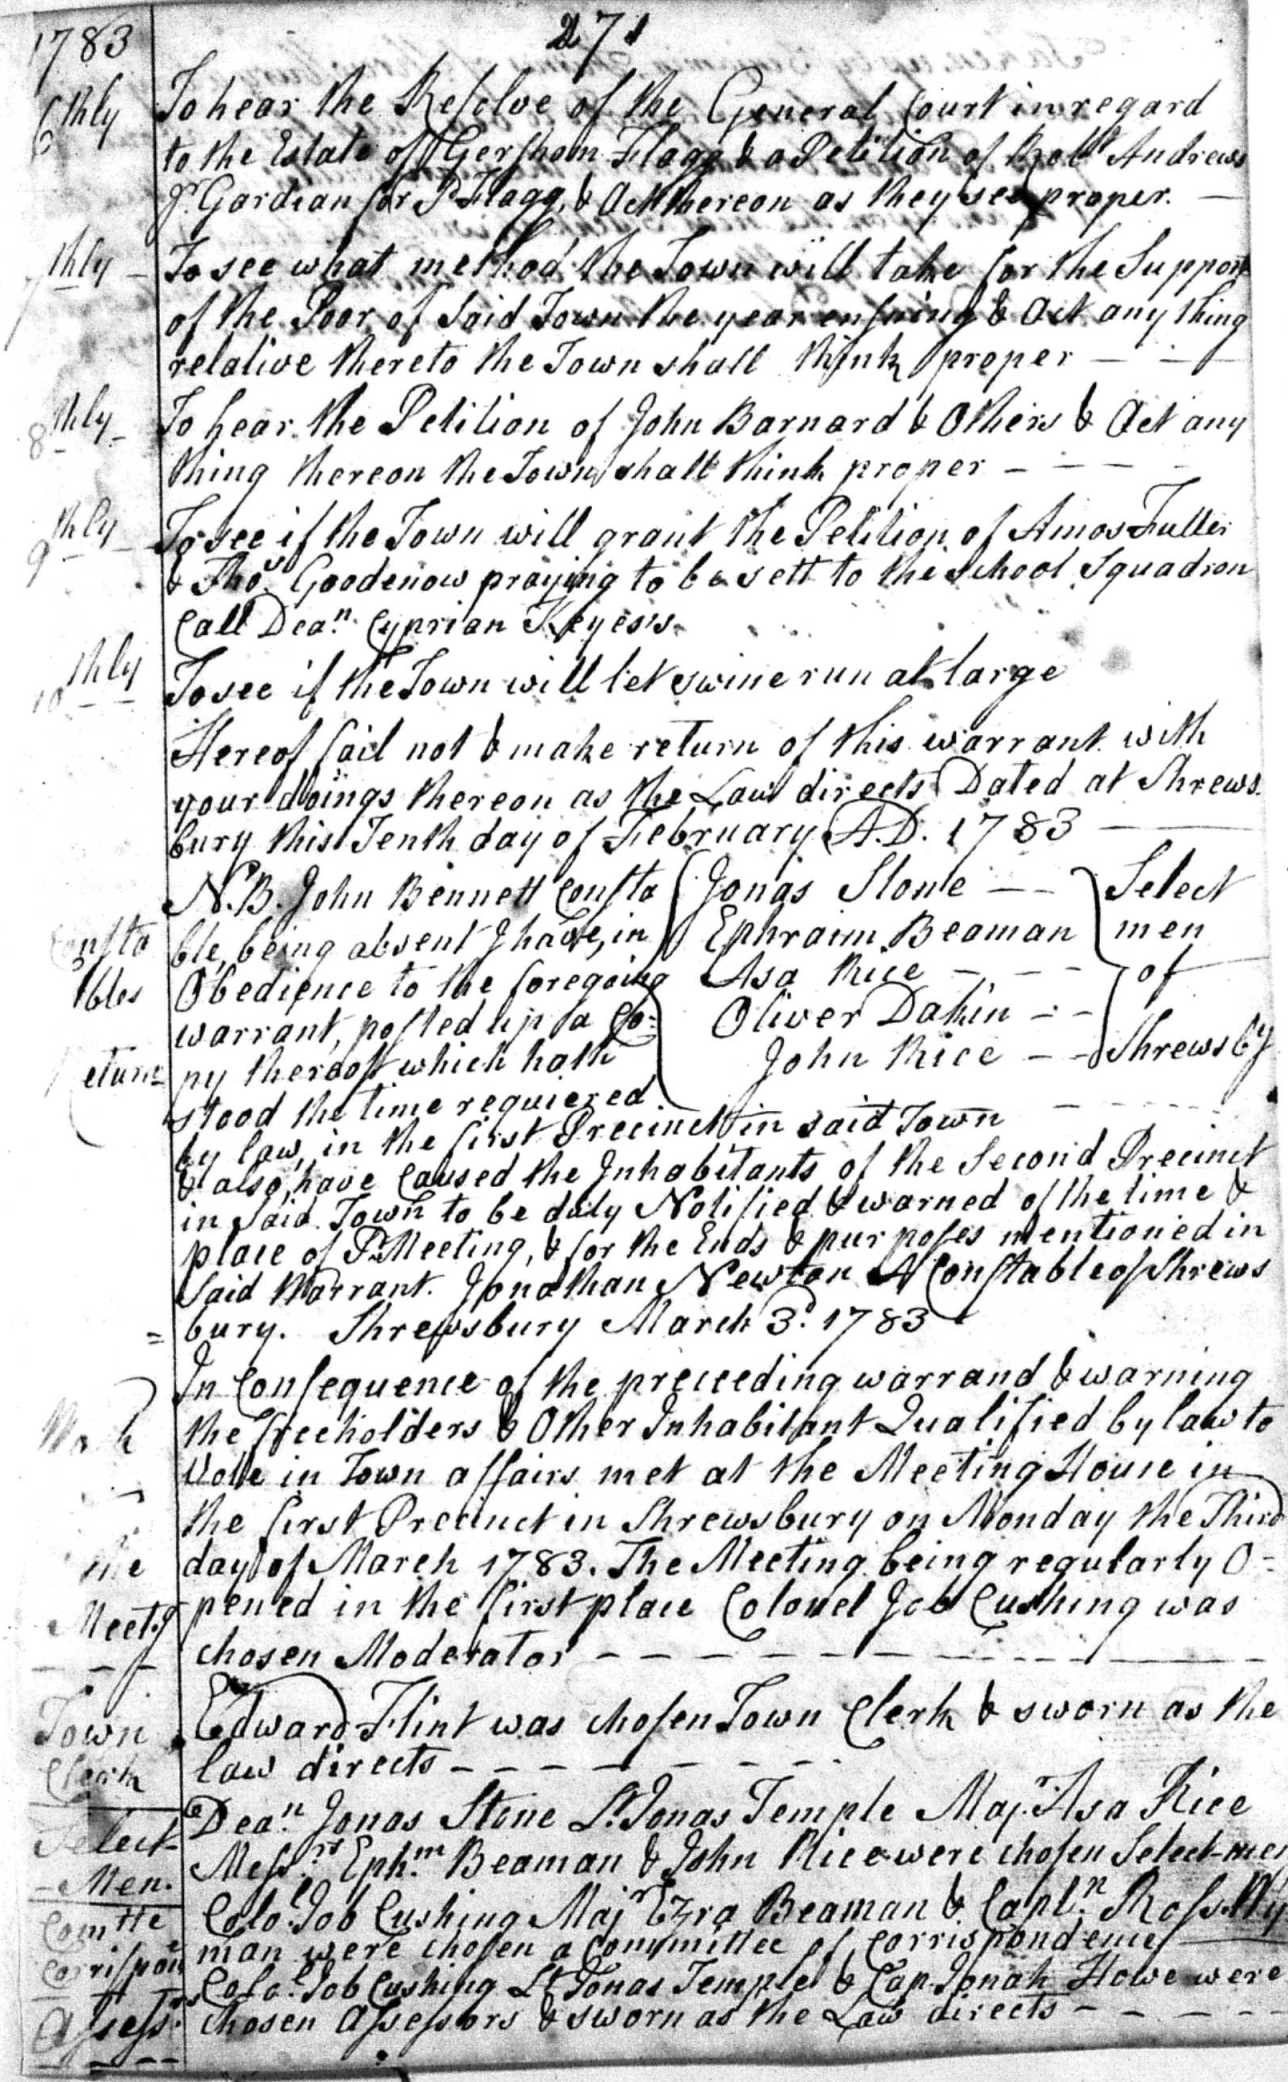 1783
271
6thly To hear the Resolve of the General Court in regard
to the Estate of Gershom Flagg & a Petition of Robt Andrews
Jr. Gardian for Sd Flagg, & Act thereon as they see proper. —
7thly – To see what method the Town will take for the Support
of the Poor of Said Town the year ensuing & Act any thing
relative thereto the Town shall think proper — — —
8thly – To hear the Petition of John Barnard & Others & Act any
thing thereon the Town shall think proper — — — —
9thly – To see if the Town will grant the Petition of Amos Fuller
& Thos. Goodenow praying to be sett to the School Squadron
Call Dean. Cyprian Keyes's
10thly To see if the Town will let swine run at large
Hereof fail not & make return of this warrant with
your doings thereon as the Law directs Dated at Shrews
bury this Tenth day of February A.D. 1783 —
N.B. John Bennett Consta
ble, being absent I have, in
Obedience to the foregoing
warrant, posted up a Co=
py thereoff which hath
stood the time requiered
Jonas Stone — —
Ephraim Beaman
Asa Rice — — —
Oliver Dakin — —
John Rice — —
Select
men
of
Shrewsby
Consta
bles
Return
by law, in the first Precinct in said Town
& also, have Caused the Inhabitants of the Second Precinct
in Said Town to be duly Notified & warned of the time &
place of Sd Meeting, & for the Ends & purposes mentioned in
Said Warrant. Jonathan Newton A Constable of Shrews
= bury. Shrewsbury March 3d. 1783
In Consequence of the preceeding warrand & warning
the freeholders & Other Inhabitant Qualified by law to
Vote in Town affairs met at the Meeting House in
the first Precinct in Shrewsbury on Monday the Third
day of March 1783. The Meeting being regularly O=
pened in the first place Colonel Job Cushing was
chosen Moderator — — — — — — —
the
Meetg
Town
Clerk
Edward Flint was chosen Town Clerk & sworn as the
law directs — — — — — — —
Select
– Men.
Dean. Jonas Stone Lt. Jonas Temple Majr. Asa Rice
Messrs. Ephm. Beaman & John Rice were chosen Select-men
Comtte
Corrispon
Colo. Job Cushing Majr Ezra Beaman & Captn. Ross Wy
man were chosen a Committee of Corrispondence
Assessrs.
Colo. Job Cushing Lt Jonas Temple & Cap. Jonah Howe were
chosen Assessors & sworn as the Law directs — — — —